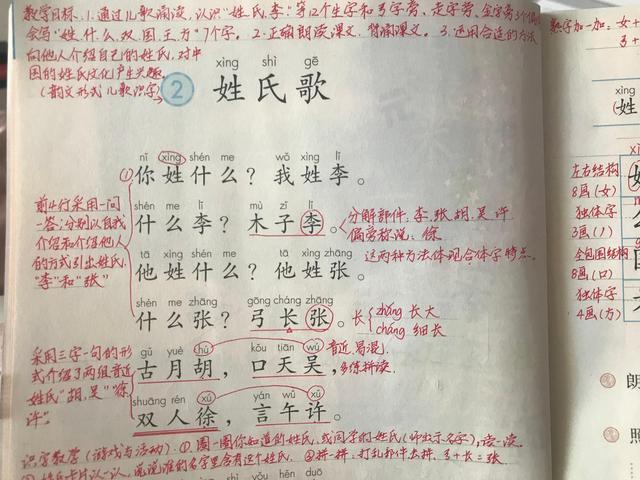 教学目标：1.通过儿歌诵读，认识"姓、氏、李"等12个生字和弓字旁、走字旁、金字旁3个偏
会写"姓、什、么、双、国、王、方"7个字。2.正确朗读课文，背诵课文。3.运用合适的方法
向他人介绍自己的姓氏，对中
国的姓氏文化产生兴趣。
（韵文形式儿歌识字）
xìng shì gē
2 姓氏歌
nǐ xìng shén me wǒ xìng lǐ
①你姓什么？我姓李。
shén me lǐ mù zǐ lǐ
什么李？木子李。
分解部件：李、张、胡、吴、许
偏旁称说：徐
tā xìng shén me tā xìng zhāng
他姓什么？他姓张。
这两种方法体现合体字特点。
shén me zhāng gōng cháng zhāng
什么张？弓长张。
长 zhǎng 长大
cháng 细长
前4行采用一问
一答，分别以自我
介绍和介绍他人
的方式引出姓氏
"李"和"张"
gǔ yuè hú kǒu tiān wú
古月胡，口天吴，
音近易混，
多练拼读。
shuāng rén xú yán wǔ xǔ
双人徐，言午许。
采用三字一句的形
式介绍了两组音近
姓氏"胡、吴""徐、
许"。
识字教学（游戏与活动）：①圈一圈你知道的姓氏，或同学的姓氏（师出示名字），读一读。
②姓氏卡片认一认，说说谁的名字里含有这个姓氏。③拼一拼：打乱部件去拼，弓+长=张
shì yǒu hěn duō
数字加一加：女+
xìng
(姓
左右结构
8画(女)
独体字
3画(丿)
全包围结构
8画(囗)
独体字
4画(方)
朗
照